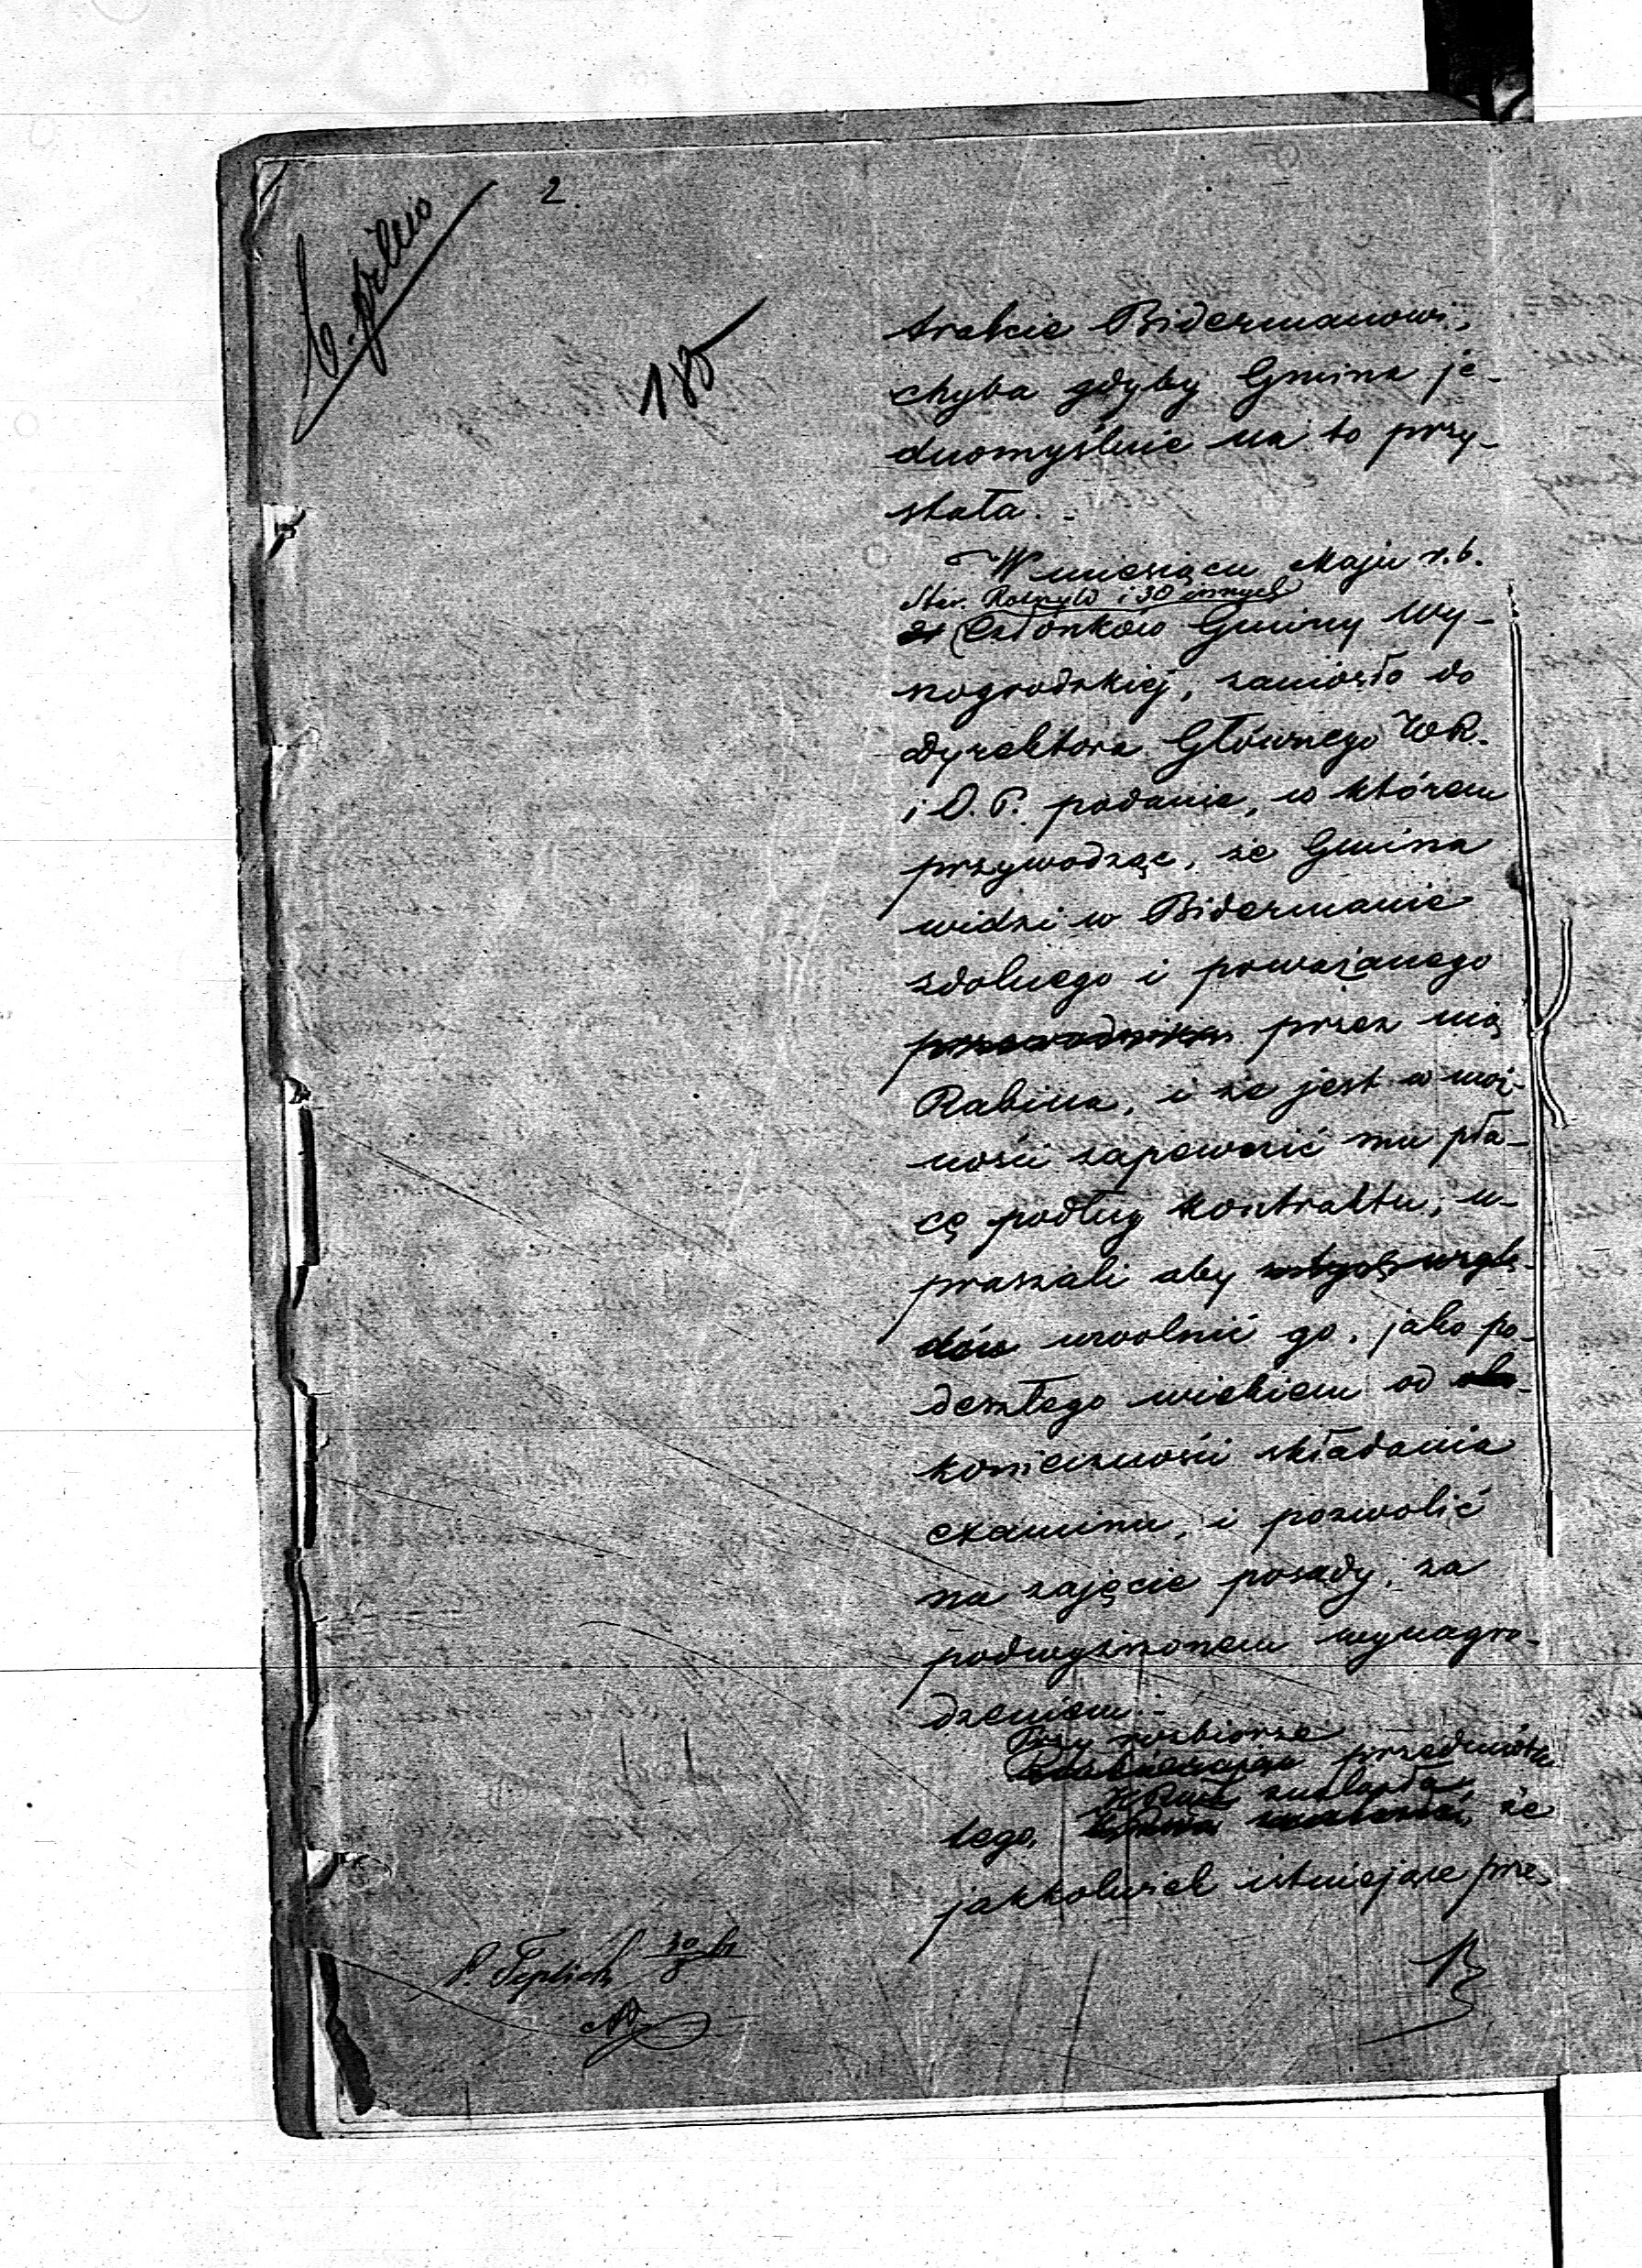 2.
185
trakcie Bidermanowi,
chyba gdyby Gmina je-
dnomyślnie na to przy-
stała.
W miesiącu Maju r.b.
i 30 innych
Członków Gminy Wy-
szogrodzkiej, zaniosło do
Dyrektora Głównego W.R.
i O.P. podanie, w którem
przywodząc, że Gmina
widzi w Bidermanie
zdolnego i poważanego
przez nią
Rabina, i że jest w moż-
ności zapewnić mu pła-
cę podług kontraktu, u-
praszali aby
uwolnić go, jako po-
deszłego wiekiem od
konieczności składania
examinu, i pozwolić
na zajęcie posady, za
podwyższonem wynagro-
dzeniem.
Przy rozbiorze
przedmiotu
znalazła,
tego, że
jakkolwiek istniejące prze-